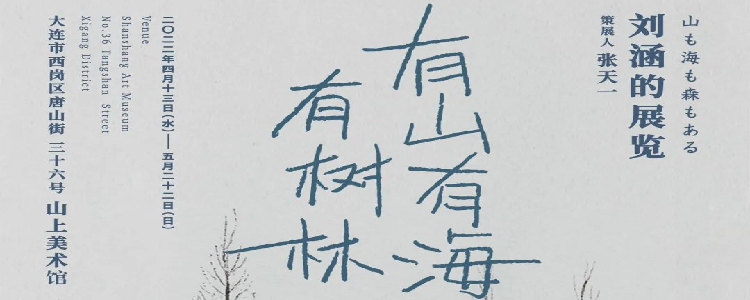 山も海も森もある
刘涵的展览
策展人 张天一
有山有海
有树林
二〇二二年四月十三日(水)— 五月二十二日(日)
Venue
Shanshang Art Museum
No.36 Tangshan Street
Xigang District
大连市西岗区唐山街 三十六号 山上美术馆